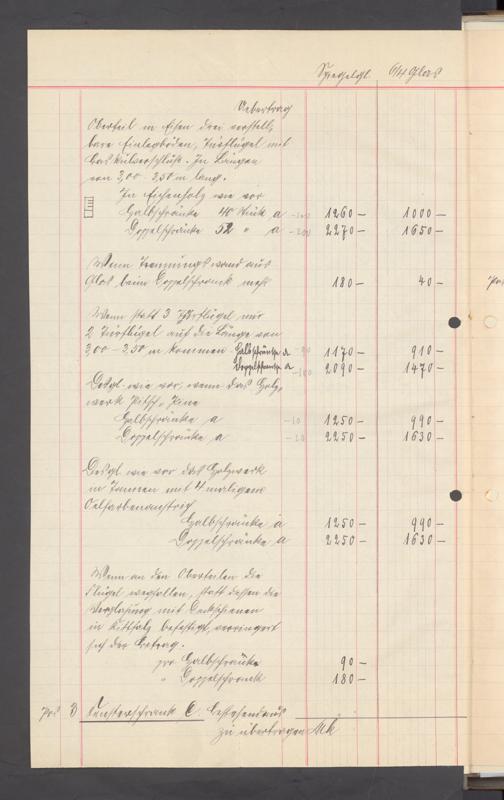 Spiegelgl. 6/4 Glas
Uebertrag
Oberteil in Eisen drei verstell,
bare Einlegböden, Türflügel mit
Basküleverschluß. In Längen
von 3,00 - 3,50 m lang.
In Eichenholz wie vor
Halbschränke 40 Stück a -100 1260 - 1000 -
Doppelschränke 52 " a -200 2270 - 1650 -
Wenn Trennungswand aus
Glas beim Doppelschrank mehr 180 - 40 -
Wenn statt 3 Türflügel nur
2 Türflügel auf die Länge von
3,00 - 3,50 m kommen Halbschränke a 1170 - 910 -
Doppelschränke a -100 2090 - 1470 -
Desgl. wie vor, wenn das Holz,
werk Pitsch-Pine
Halbschränke a -10 1250 - 990 -
Doppelschränke a -20 2250 - 1630 -
Desgl. wie vor das Holzwerk
in Tannen mit 4 maligem
Oelfarbenanstrich
Halbschränke à 1250 - 990 -
Doppelschränke a 2250 - 1630 -
Wenn an den Oberteilen die
Flügel wegfallen, statt dessen die
Verglasung mit Deckschienen
in Kittfalz befestigt, verringert
sich der Betrag.
pro Halbschränke 90 -
" Doppelschrank 180 -
Pos 3 Fensterschrank C. bestehend aus
zu übertragen Mk
Pos